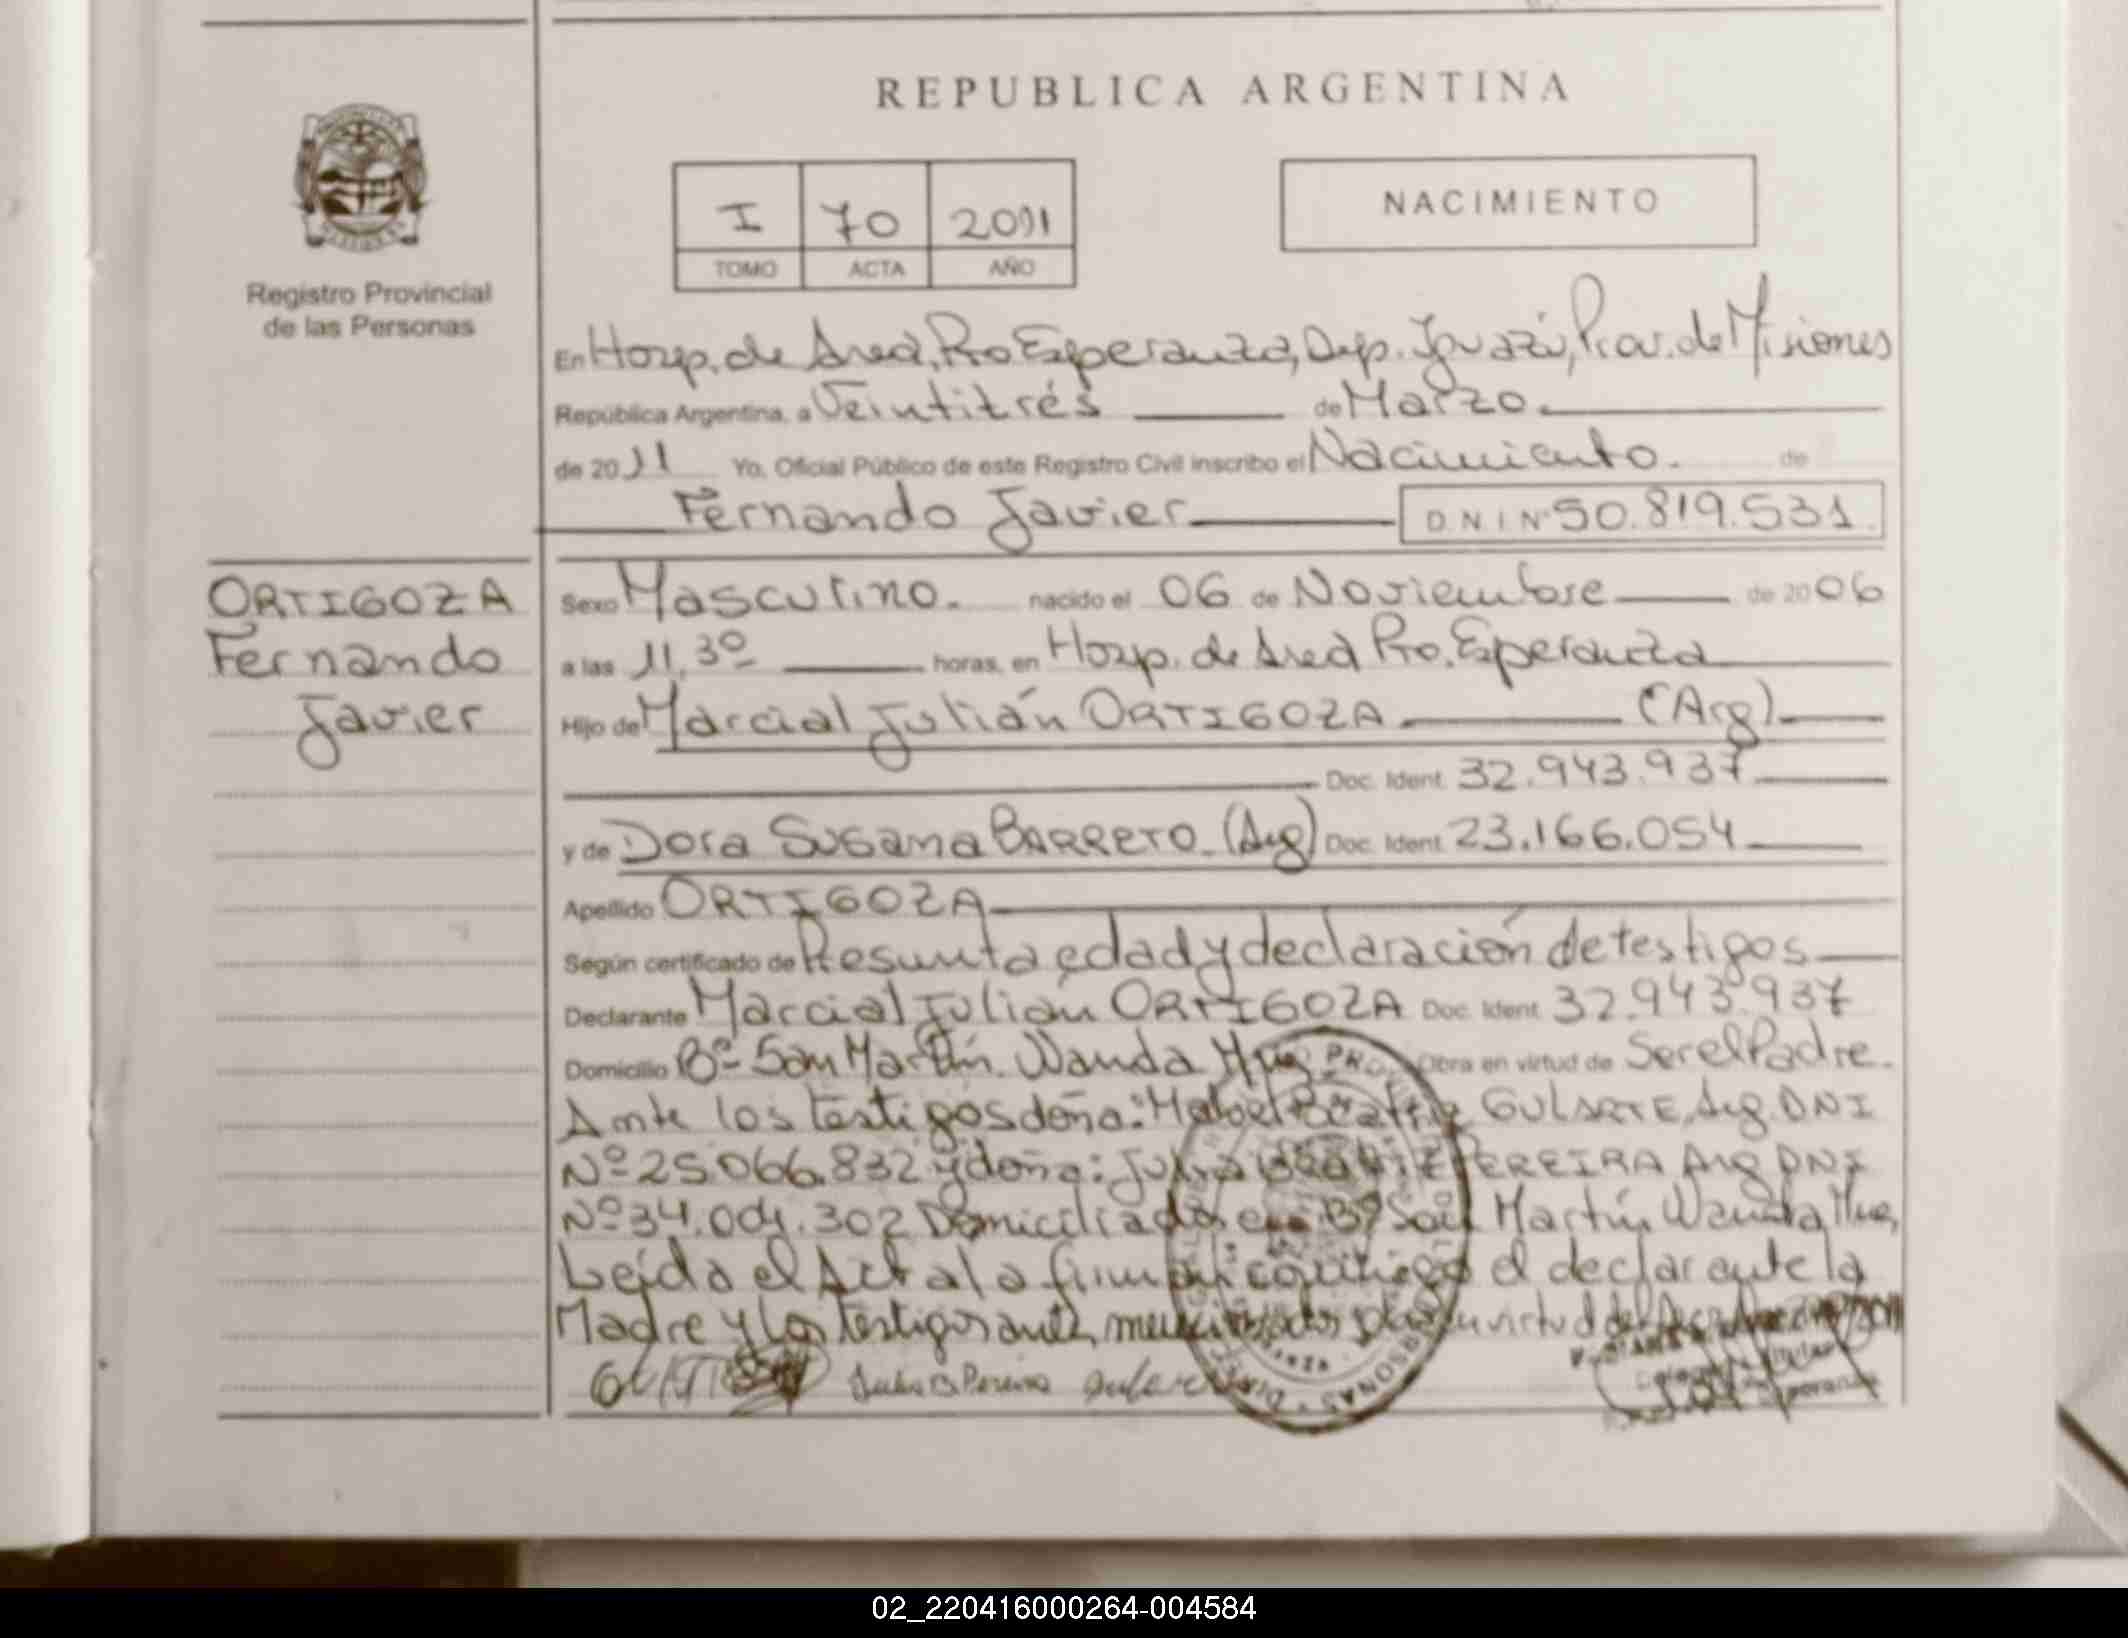 REPUBLICA ARGENTINA
I 70 2011
TOMO ACTA AÑO
NACIMIENTO
Registro Provincial
de las Personas
En Hosp. de Area, Pto Esperanza, Dep. Iguazú, Prov. de Misiones
República Argentina, a Veintitrés de Marzo.
de 2011 Yo, Oficial Público de este Registro Civil inscribo el Nacimiento. de
Fernando Javier D.N.I Nº 50.819.531
ORTIGOZA
Fernando
Javier
Sexo Masculino. nacido el 06 de Noviembre de 2006
a las 11,30 horas, en Hosp. de Area Pto. Esperanza
Hijo de Marcial Julián ORTIGOZA (Arg)
Doc. Ident. 32.943.937
y de Dora Susana BARRETO (Arg) Doc. Ident. 23.166.054
Apellido ORTIGOZA
Según certificado de Presunta edad y declaración de testigos
Declarante Marcial Julián ORTIGOZA Doc. Ident. 32.943.937
Domicilio Bº San Martín. Wanda Mnes Obra en virtud de Ser el Padre.
Ante los testigos doña: Mabel Beatriz GULARTE, Arg. DNI
Nº 25.066.832 y doña: PEREIRA Arg DNI
Nº 34.004.302 Domiciliados en Bº San Martín Wanda Mnes,
Leída el Acta la firman conmigo el declarante la
Madre y los testigos antes mencionados virtud del
02_220416000264-004584